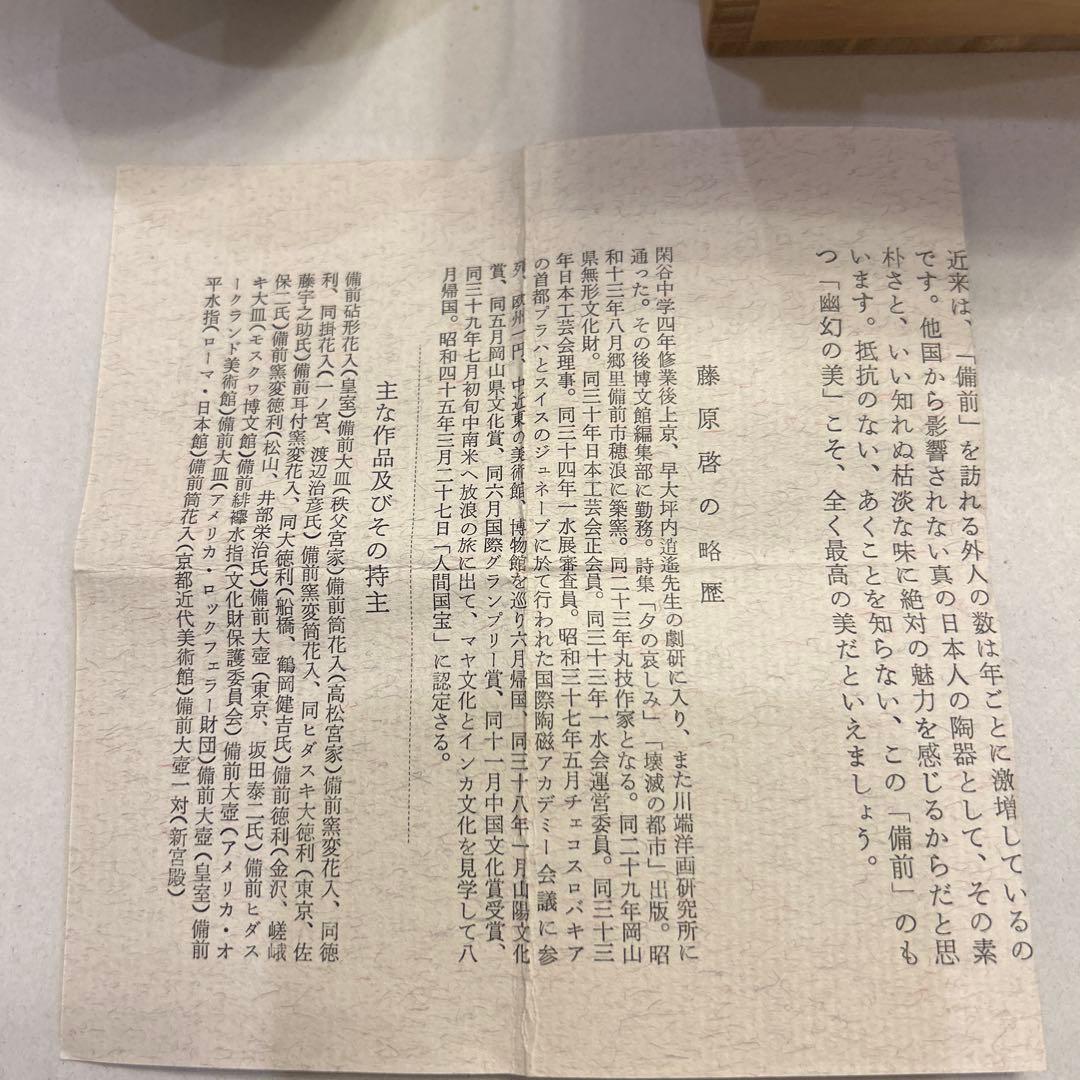 近来は、「備前」を訪れる外人の数は年ごとに激増しているの
です。他国から影響されない真の日本人の陶器として、その素
朴さと、いい知れぬ枯淡な味に絶対の魅力を感じるからだと思
います。抵抗のない、あくことを知らない、この「備前」のも
つ「幽幻の美」こそ、全く最高の美だといえましょう。
藤原啓の略歴
閑谷中学四年修業後上京、早大坪内逍遙先生の劇研に入り、また川端洋画研究所に
通った。その後博文館編集部に勤務。詩集「夕の哀しみ」「壊滅の都市」出版。昭
和十三年八月郷里備前市穂浪に築窯。同二十三年丸技作家となる。同二十九年岡山
県無形文化財。同三十年日本工芸会正会員。同三十三年一水会運営委員。同三十三
年日本工芸会理事。同三十四年一水展審査員。昭和三十七年五月チェコスロバキア
の首都プラハとスイスのジュネーブに於て行われた国際陶磁アカデミー会議に参
列、欧州一円、中近東の美術館、博物館を巡り六月帰国、同三十八年一月山陽文化
賞、同五月岡山県文化賞、同六月国際グランプリー賞、同十一月中国文化賞受賞、
同三十九年七月初旬中南米へ放浪の旅に出て、マヤ文化とインカ文化を見学して八
月帰国。昭和四十五年三月二十七日「人間国宝」に認定さる。
主な作品及びその持主
備前砧形花入(皇室)備前大皿(秩父宮家)備前筒花入(高松宮家)備前窯変花入、同徳
利、同掛花入(一ノ宮、渡辺治彦氏)備前窯変筒花入、同ヒダスキ大徳利(東京、佐
藤宇之助氏)備前耳付窯変花入、同大徳利(船橋、鶴岡健吉氏)備前徳利(金沢、嵯峨
保二氏)備前窯変徳利(松山、井部栄治氏)備前大壺(東京、坂田泰二氏)備前ヒダス
キ大皿(モスクワ博文館)備前緋襷水指(文化財保護委員会)備前大壺(アメリカ・オ
ークランド美術館)備前大皿(アメリカ・ロックフェラー財団)備前大壺(皇室)備前
平水指(ローマ・日本館)備前筒花入(京都近代美術館)備前大壺一対(新宮殿)